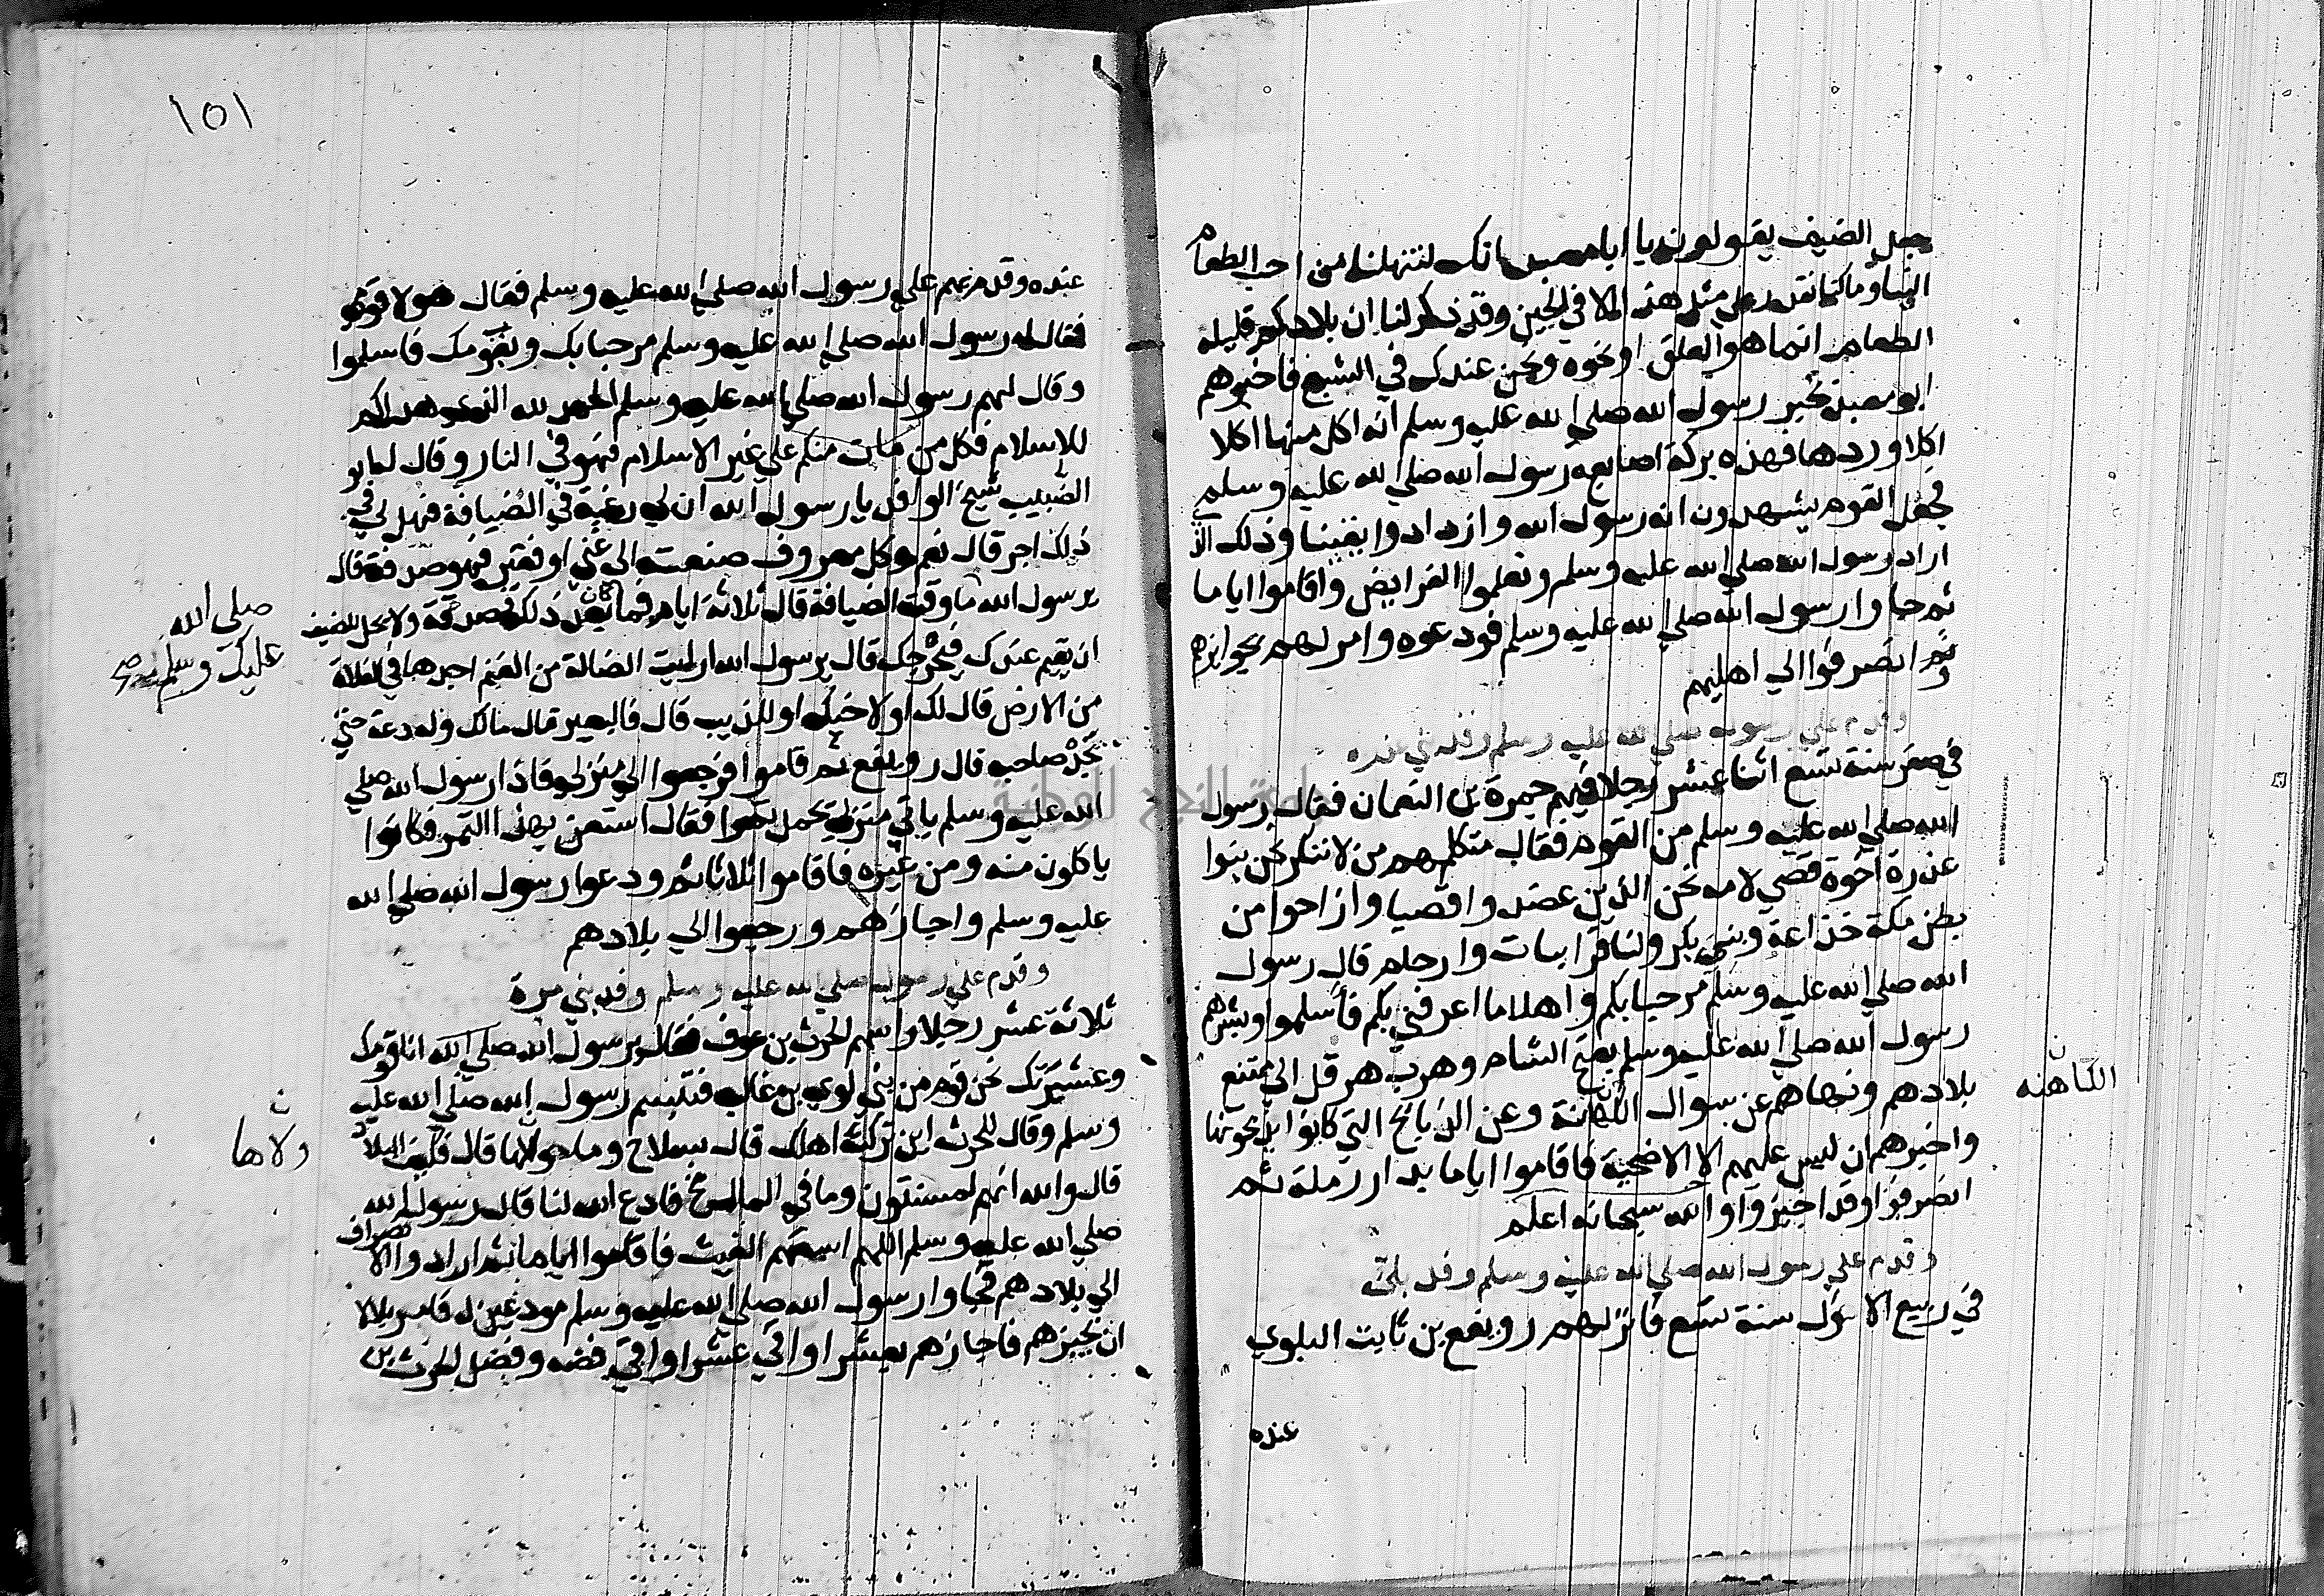 جعل الضيف يقولون يا ابا معبد انك لتنهلنا من احب الطعام
الينا وما كنا نقدر على مثل هذا الا في الحين وقد ذكر لنا ان بلادكم قليلة
الطعام انما هو العلق او نحوه ونحن عندك في الشبع فاخبرهم
ابو معبد بخبر رسول الله صلي الله عليه وسلم انه اكل منها اكلا
اكلا وردها فهذه بركة اصابع رسول الله صلي الله عليه وسلم
فجعل القوم يشهدون انه رسول الله وازدادوا يقينا وذلك الذي
اراد رسول الله صلي الله عليه وسلم وتعلموا الفرايض واقاموا اياما
ثم جاوا رسول الله صلي الله عليه وسلم فودعوه وامر لهم بجوايزهم
ثم انصرفوا الي اهليهم
وقدم علي رسول الله صلي الله عليه وسلم وفد بني عذره
في صفر سنة تسع اثنا عشر رجلا فيهم جمرة بن النعمان فقال رسول
الله صلي الله عليه وسلم من القوم فقال متكلمهم من لا تنكر نحن بنوا
عذرة اخوة قصي لامه نحن الذين عضدوا قصيا وازاحوا من
بطن مكة خزاعة وبني بكر ولنا قرابات وارحام قال رسول
الله صلي الله عليه وسلم مرحبا بكم واهلا ما اعرفني بكم فاسلموا وبشرهم
رسول الله صلي الله عليه وسلم بفتح الشام وهرب هرقل الي ممتنع
بلادهم ونهاهم عن سوال الكهانة وعن الذبايح التي كانوا يذبحونها
الكاهنه
واخبرهم ان ليس عليهم الا الاضحية فاقاموا اياما بدار رملة ثم
انصرفوا وقد اجيزوا والله سبحانه اعلم
وقدم علي رسول الله صلي الله عليه وسلم وفد بلي
في ربيع الاول سنة تسع فانزلهم رويفع بن ثابت البلوي
عنده
١٥١
عنده وقدم بهم علي رسول الله صلي الله عليه وسلم فقال هولا قومي
فقال له رسول الله صلي الله عليه وسلم مرحبا بك وبقومك فاسلموا
وقال لهم رسول الله صلي الله عليه وسلم الحمد لله الذي هداكم
للاسلام فكل من مات منكم علي غير الاسلام فهو في النار وقال له ابو
الضبيب شيخ الوفد يا رسول الله ان لي رغبة في الضيافة فهل لي في
ذلك اجر قال نعم وكل معروف صنعته الي غني او فقير فهو صدقة قال
يرسول الله ما وقت الضيافة قال ثلاثة ايام فما كان بعد ذلك فصدقة ولا يحل للضيف
صلي الله
عليك وسلم
ان يقيم عندك فيحرجك قال يرسول الله ارايت الضالة من الغنم اجدها في الفلاة
من الارض قال لك او لاخيك او للذيب قال فالبعير قال مالك وله دعه حتي
يجده صاحبه قال رويفع ثم قاموا فرجعوا الي منزلي فاذا رسول الله صلي
الله عليه وسلم ياتي منزلي يحمل تمرا فقال استعن بهذا التمر فكانوا
ياكلون منه ومن غيره فاقاموا ثلاثا ثم ودعوا رسول الله صلي الله
عليه وسلم واجازهم ورجعوا الي بلادهم
وقدم علي رسول الله صلي الله عليه وسلم وفد بني مرة
ثلاثة عشر رجلا راسهم الحرث بن عوف فقال يرسول الله صلي الله انا قومك
وعشيرتك نحن قوم من بني لوي بن غالب فتبسم رسول الله صلي الله عليه
وسلم وقال للحرث اين تركت اهلك قال بسلاح وما والاها قال فكيف البلاد
ولاها
قالوا والله انهم لمسنتون وما في المال مخ فادع الله لنا قال رسول الله
صلي الله عليه وسلم اللهم اسقهم الغيث فاقاموا اياما ثم ارادوا الانصراف
الي بلادهم فجاوا رسول الله صلي الله عليه وسلم مودعين له فامر بلالا
ان يجيزهم فاجازهم بعشر اواقي عشر اواقي فضه وفضل الحرث بن